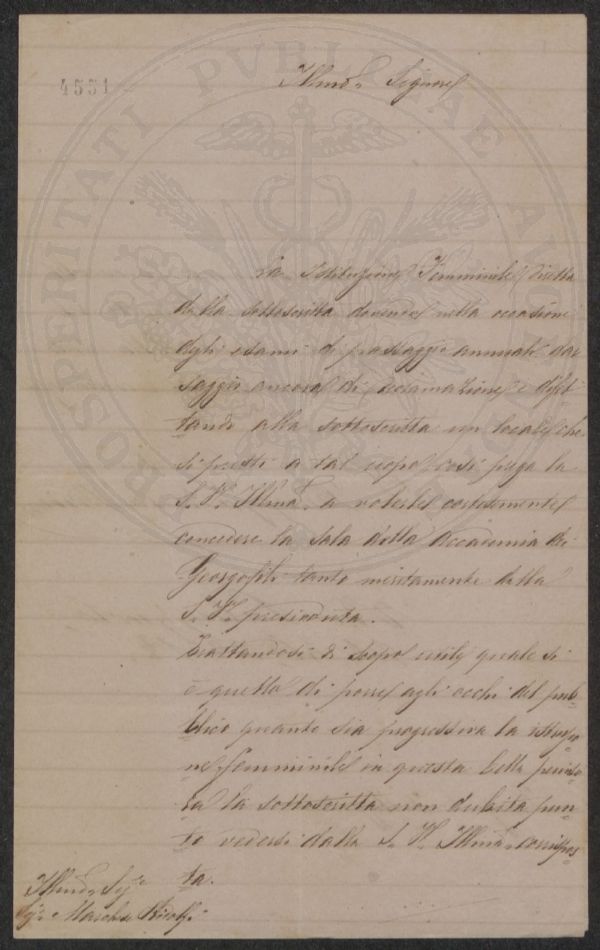 4551
Illmo. Signore
La Istituzione Femminile diretta
dalla sottoscritta dovendo nella occasione
degli esami di passaggio annuali dar
saggio ancora di declamazione e difet-
tando alla sottoscritta un locale che
si presti a tal scopo, così prega la
S. V. Illma. a volerle cortesemente
concedere la Sala della Accademia dei
Georgofili tanto meritamente dalla
S. V. presieduta.
Trattandosi di scopo utile quale si
è quello di porre agli occhi del pub-
blico quanto sia progressiva la istruzio-
ne femminile in questa bella peniso-
la la sottoscritta non dubita pun-
to vedersi dalla S. V. Illma. corrispos-
ta.
Illmo. Sigre.
Sigr. Marchse. Ridolfi
PROSPERITATI PVBLICAE AVGENDAE